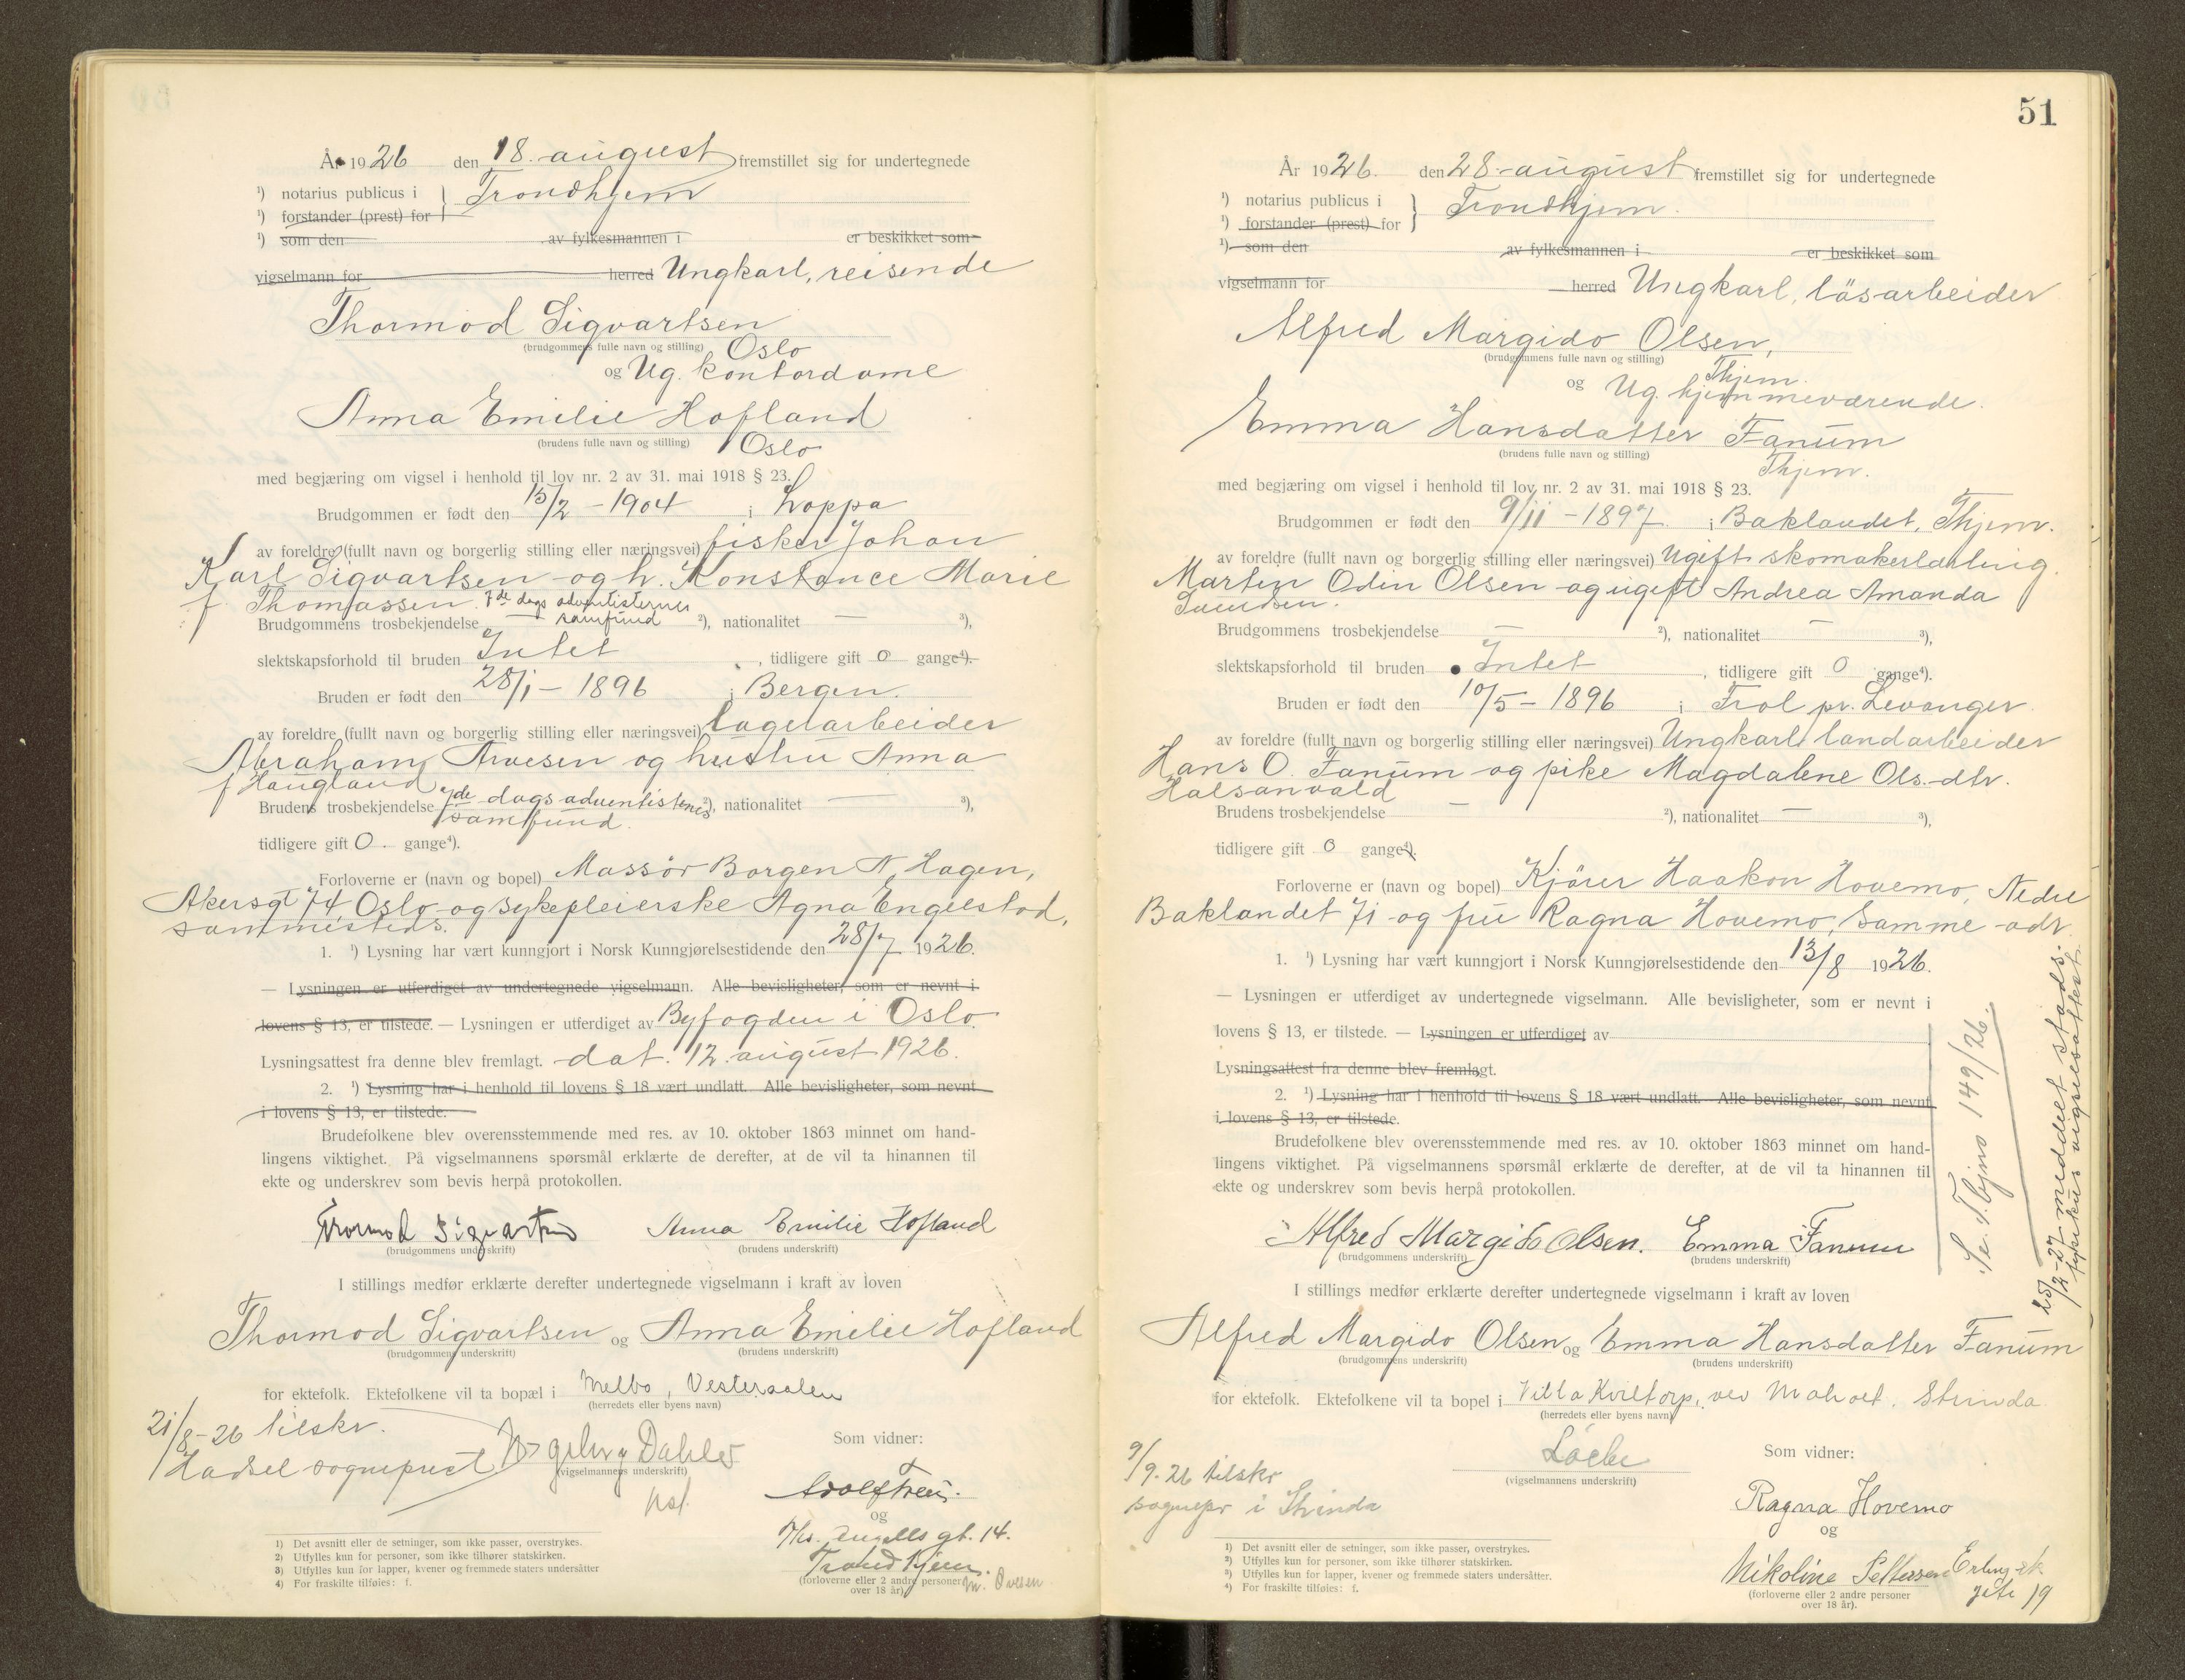 År 1926 den 18. august fremstillet sig for undertegnede
¹) notarius publicus i } Trondhjem
¹) forstander (prest) for
¹) som den av fylkesmannen i er beskikket som
vigselmann for herred Ungkarl, reisende
Thormod Sigvartsen
(brudgommens fulle navn og stilling) Oslo
og Ug. kontordame
Anna Emilie Hofland
(brudens fulle navn og stilling) Oslo
med begjæring om vigsel i henhold til lov nr. 2 av 31. mai 1918 § 23.
Brudgommen er født den 15/2 - 1904 i Loppa
av foreldre (fullt navn og borgerlig stilling eller næringsvei) fisker Johan
Karl Sigvartsen og h. Konstance Marie
f. Thomassen. 7de dags adventisternes
Brudgommens trosbekjendelse samfund ²), nationalitet — ³),
slektskapsforhold til bruden Intet, tidligere gift 0 gange⁴).
Bruden er født den 28/1 - 1896 i Bergen.
av foreldre (fullt navn og borgerlig stilling eller næringsvei) lagerarbeider
Abraham Arnesen og hustru Anna
f Haugland
Brudens trosbekjendelse 7de dags adventistenes ²), nationalitet — ³),
samfund.
tidligere gift 0. gange⁴).
Forloverne er (navn og bopel) Massør Borgen N. Hagen,
Akersgt 74, Oslo og sykepleierske Agna Engelstad,
sammesteds.
1. ¹) Lysning har vært kunngjort i Norsk Kunngjørelsestidende den 28/7 1926.
— Lysningen er utferdiget av undertegnede vigselmann. Alle bevisligheter, som er nevnt i
lovens § 13, er tilstede. — Lysningen er utferdiget av Byfogden i Oslo.
Lysningsattest fra denne blev fremlagt. dat. 12. august 1926.
2. ¹) Lysning har i henhold til lovens § 18 vært undlatt. Alle bevisligheter, som nevnt
i lovens § 13, er tilstede.
Brudefolkene blev overensstemmende med res. av 10. oktober 1863 minnet om hand-
lingens viktighet. På vigselmannens spørsmål erklærte de derefter, at de vil ta hinannen til
ekte og underskrev som bevis herpå protokollen.
Tormod Sigvartsen Anna Emilie Hofland
(brudgommens underskrift) (brudens underskrift)
I stillings medfør erklærte derefter undertegnede vigselmann i kraft av loven
Thormod Sigvartsen og Anna Emilie Hofland
(brudgommens underskrift) (brudens underskrift)
for ektefolk. Ektefolkene vil ta bopæl i Melbo, Vesteraalen
(herredets eller byens navn)
21/8-26 tilskr.
Hadsel sogneprest
Dahler
(vigselmannens underskrift)
Som vidner:
og
Ths. Angells gt. 14.
Trondhjem.
(forloverne eller 2 andre personer
over 18 år)
1) Det avsnitt eller de setninger, som ikke passer, overstrykes.
2) Utfylles kun for personer, som ikke tilhører statskirken.
3) Utfylles kun for lapper, kvener og fremmede staters undersåtter
4) For fraskilte tilføies: f.
51
År 1926. den 28. august fremstillet sig for undertegnede
¹) notarius publicus i } Trondhjem.
¹) forstander (prest) for
¹) som den av fylkesmannen i er beskikket som
vigselmann for herred Ungkarl, løsarbeider
Alfred Margido Olsen,
(brudgommens fulle navn og stilling) Thjem.
og Ug. hjemmeværende.
Emma Hansdatter Fanum
(brudens fulle navn og stilling) Thjem.
med begjæring om vigsel i henhold til lov nr. 2 av 31. mai 1918 § 23.
Brudgommen er født den 9/11 - 1897 i Baklandet, Thjem.
av foreldre (fullt navn og borgerlig stilling eller næringsvei) Ugift skomakerlærling
Martin Odin Olsen og ugift Andrea Amanda
Svendsen.
Brudgommens trosbekjendelse — ²), nationalitet — ³),
slektskapsforhold til bruden Intet, tidligere gift 0 gange⁴).
Bruden er født den 10/5 - 1896 i Frol pr. Levanger
av foreldre (fullt navn og borgerlig stilling eller næringsvei) Ungkarl landarbeider
Hans O. Fanum og pike Magdalene Ols.-dtr.
Halsanvald
Brudens trosbekjendelse — ²), nationalitet — ³),
tidligere gift 0 gange⁴).
Forloverne er (navn og bopel) Kjører Haakon Hovemo, Nedre
Baklandet 71 og fru Ragna Hovemo, samme adr
1. ¹) Lysning har vært kunngjort i Norsk Kunngjørelsestidende den 13/8 1926.
— Lysningen er utferdiget av undertegnede vigselmann. Alle bevisligheter, som er nevnt i
lovens § 13, er tilstede. — Lysningen er utferdiget av
Lysningsattest fra denne blev fremlagt.
2. ¹) Lysning har i henhold til lovens § 18 vært undlatt. Alle bevisligheter, som nevnt
i lovens § 13, er tilstede.
Brudefolkene blev overensstemmende med res. av 10. oktober 1863 minnet om hand-
lingens viktighet. På vigselmannens spørsmål erklærte de derefter, at de vil ta hinannen til
ekte og underskrev som bevis herpå protokollen.
Alfred Margido Olsen. Emma Fanum
(brudgommens underskrift) (brudens underskrift)
I stillings medfør erklærte derefter undertegnede vigselmann i kraft av loven
Alfred Margido Olsen og Emma Hansdatter Fanum
(brudgommens underskrift) (brudens underskrift)
for ektefolk. Ektefolkene vil ta bopel i Villa Kviltorp, ved Moholt, Strinda
(herredets eller byens navn)
9/9.26 tilskr
sognepr i Strinda
(vigselmannens underskrift)
Som vidner:
Ragna Hovemo
og
Nikoline Pettersen
(forloverne eller 2 andre personer
over 18 år).
1) Det avsnitt eller de setninger, som ikke passer, overstrykes.
2) Utfylles kun for personer, som ikke tilhører statskirken.
3) Utfylles kun for lapper, kvener og fremmede staters undersåtter.
4) For fraskilte tilføies: f.
149/26.
25/2-27 meddelt stads-
fysikus vigselsattest